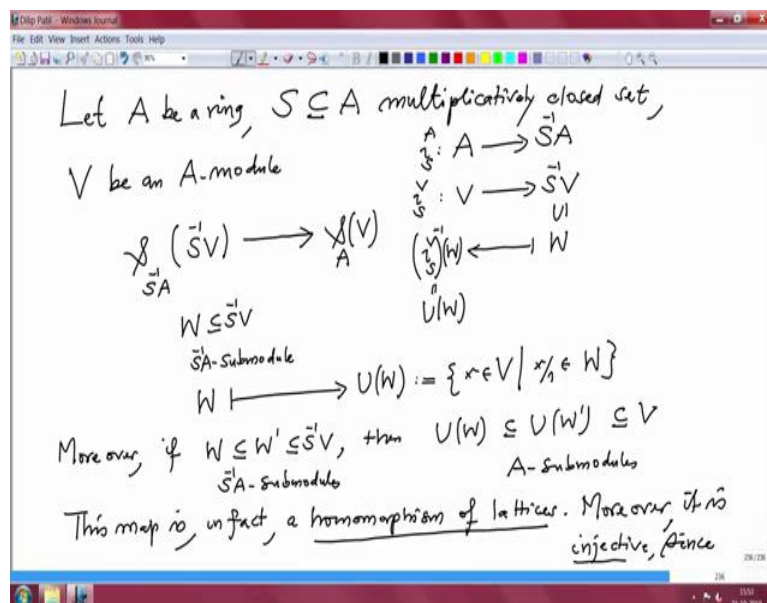 Dilip Patil - Windows Journal
File Edit View Insert Actions Tools Help
Let A be a ring, S ⊆ A multiplicatively closed set,
V be an A-module
ι_S^A : A ⟶ S⁻¹A
ι_S^V : V ⟶ S⁻¹V
∪|
(ι_S^V)⁻¹(W) ⟵| W
"
U(W)
𝒮_{S⁻¹A}(S⁻¹V) ⟶ 𝒮_A(V)
W ⊆ S⁻¹V
S⁻¹A-submodule
W |⟶ U(W) := {x ∈ V | x/1 ∈ W}
Moreover, if W ⊆ W' ⊆ S⁻¹V, then U(W) ⊆ U(W') ⊆ V
S⁻¹A-submodules A-submodules
This map is, in fact, a homomorphism of lattices. Moreover, it is
injective, since
236/236
236